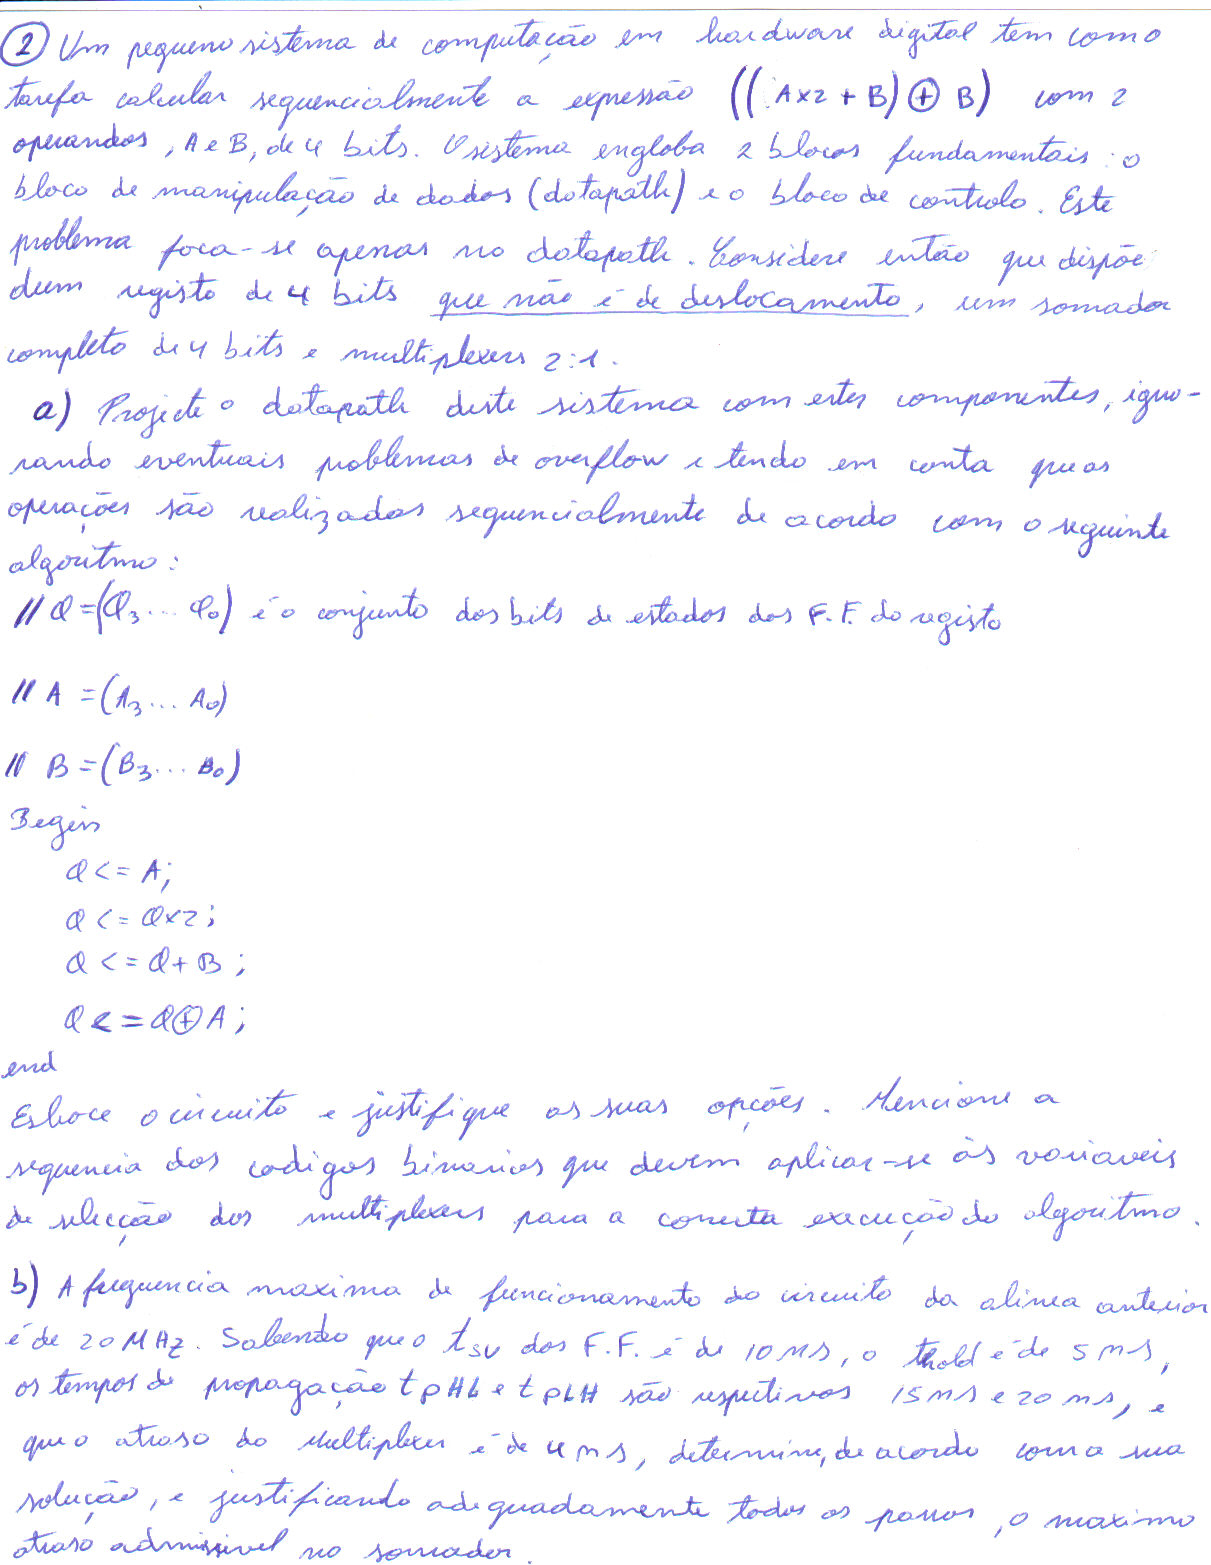 ② Um pequeno sistema de computação em hardware digital tem como
tarefa calcular sequencialmente a expressão ((A×2 + B) ⊕ B) com 2
operandos, A e B, de 4 bits. O sistema engloba 2 blocos fundamentais: o
bloco de manipulação de dados (datapath) e o bloco de controlo. Este
problema foca-se apenas no datapath. Considere então que dispõe
dum registo de 4 bits que não é de deslocamento, um somador
completo de 4 bits e multiplexers 2:1.
a) Projecte o datapath deste sistema com estes componentes, igno-
rando eventuais problemas de overflow e tendo em conta que as
operações são realizadas sequencialmente de acordo com o seguinte
algoritmo:
// Q = (Q3 ... Q0) é o conjunto dos bits de estados dos F.F. do registo
// A = (A3 ... A0)
// B = (B3 ... B0)
Begin
Q <= A;
Q <= Q×2;
Q <= Q + B;
Q <= Q ⊕ A;
end
Esboce o circuito e justifique as suas opções. Mencione a
sequencia dos codigos binarios que devem aplicar-se às variaveis
de selecção dos multiplexers para a correcta execução do algoritmo.
b) A frequencia maxima de funcionamento do circuito da alinea anterior
é de 20 MHz. Sabendo que o tsu dos F.F. é de 10 ns, o thold é de 5 ns,
os tempos de propagação tpHL e tpLH são respetivos 15 ns e 20 ns, e
que o atraso do Multiplexer é de 4 ns, determine, de acordo com a sua
solução, e justificando adequadamente todos os passos, o maximo
atraso admissivel no somador.